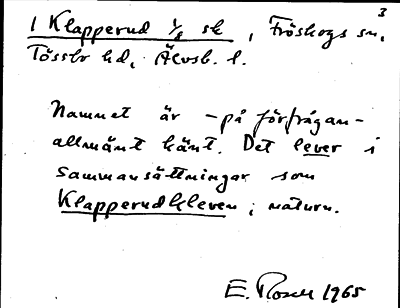 3
1 Klapperud 1/8 sk, Fröskogs sn,
Tössbr hd, Älvsb. l.
Namnet är - på förfrågan -
allmänt känt. Det lever i
sammansättningar som
Klapperudkleven i naturn.
E. Rosell 1965